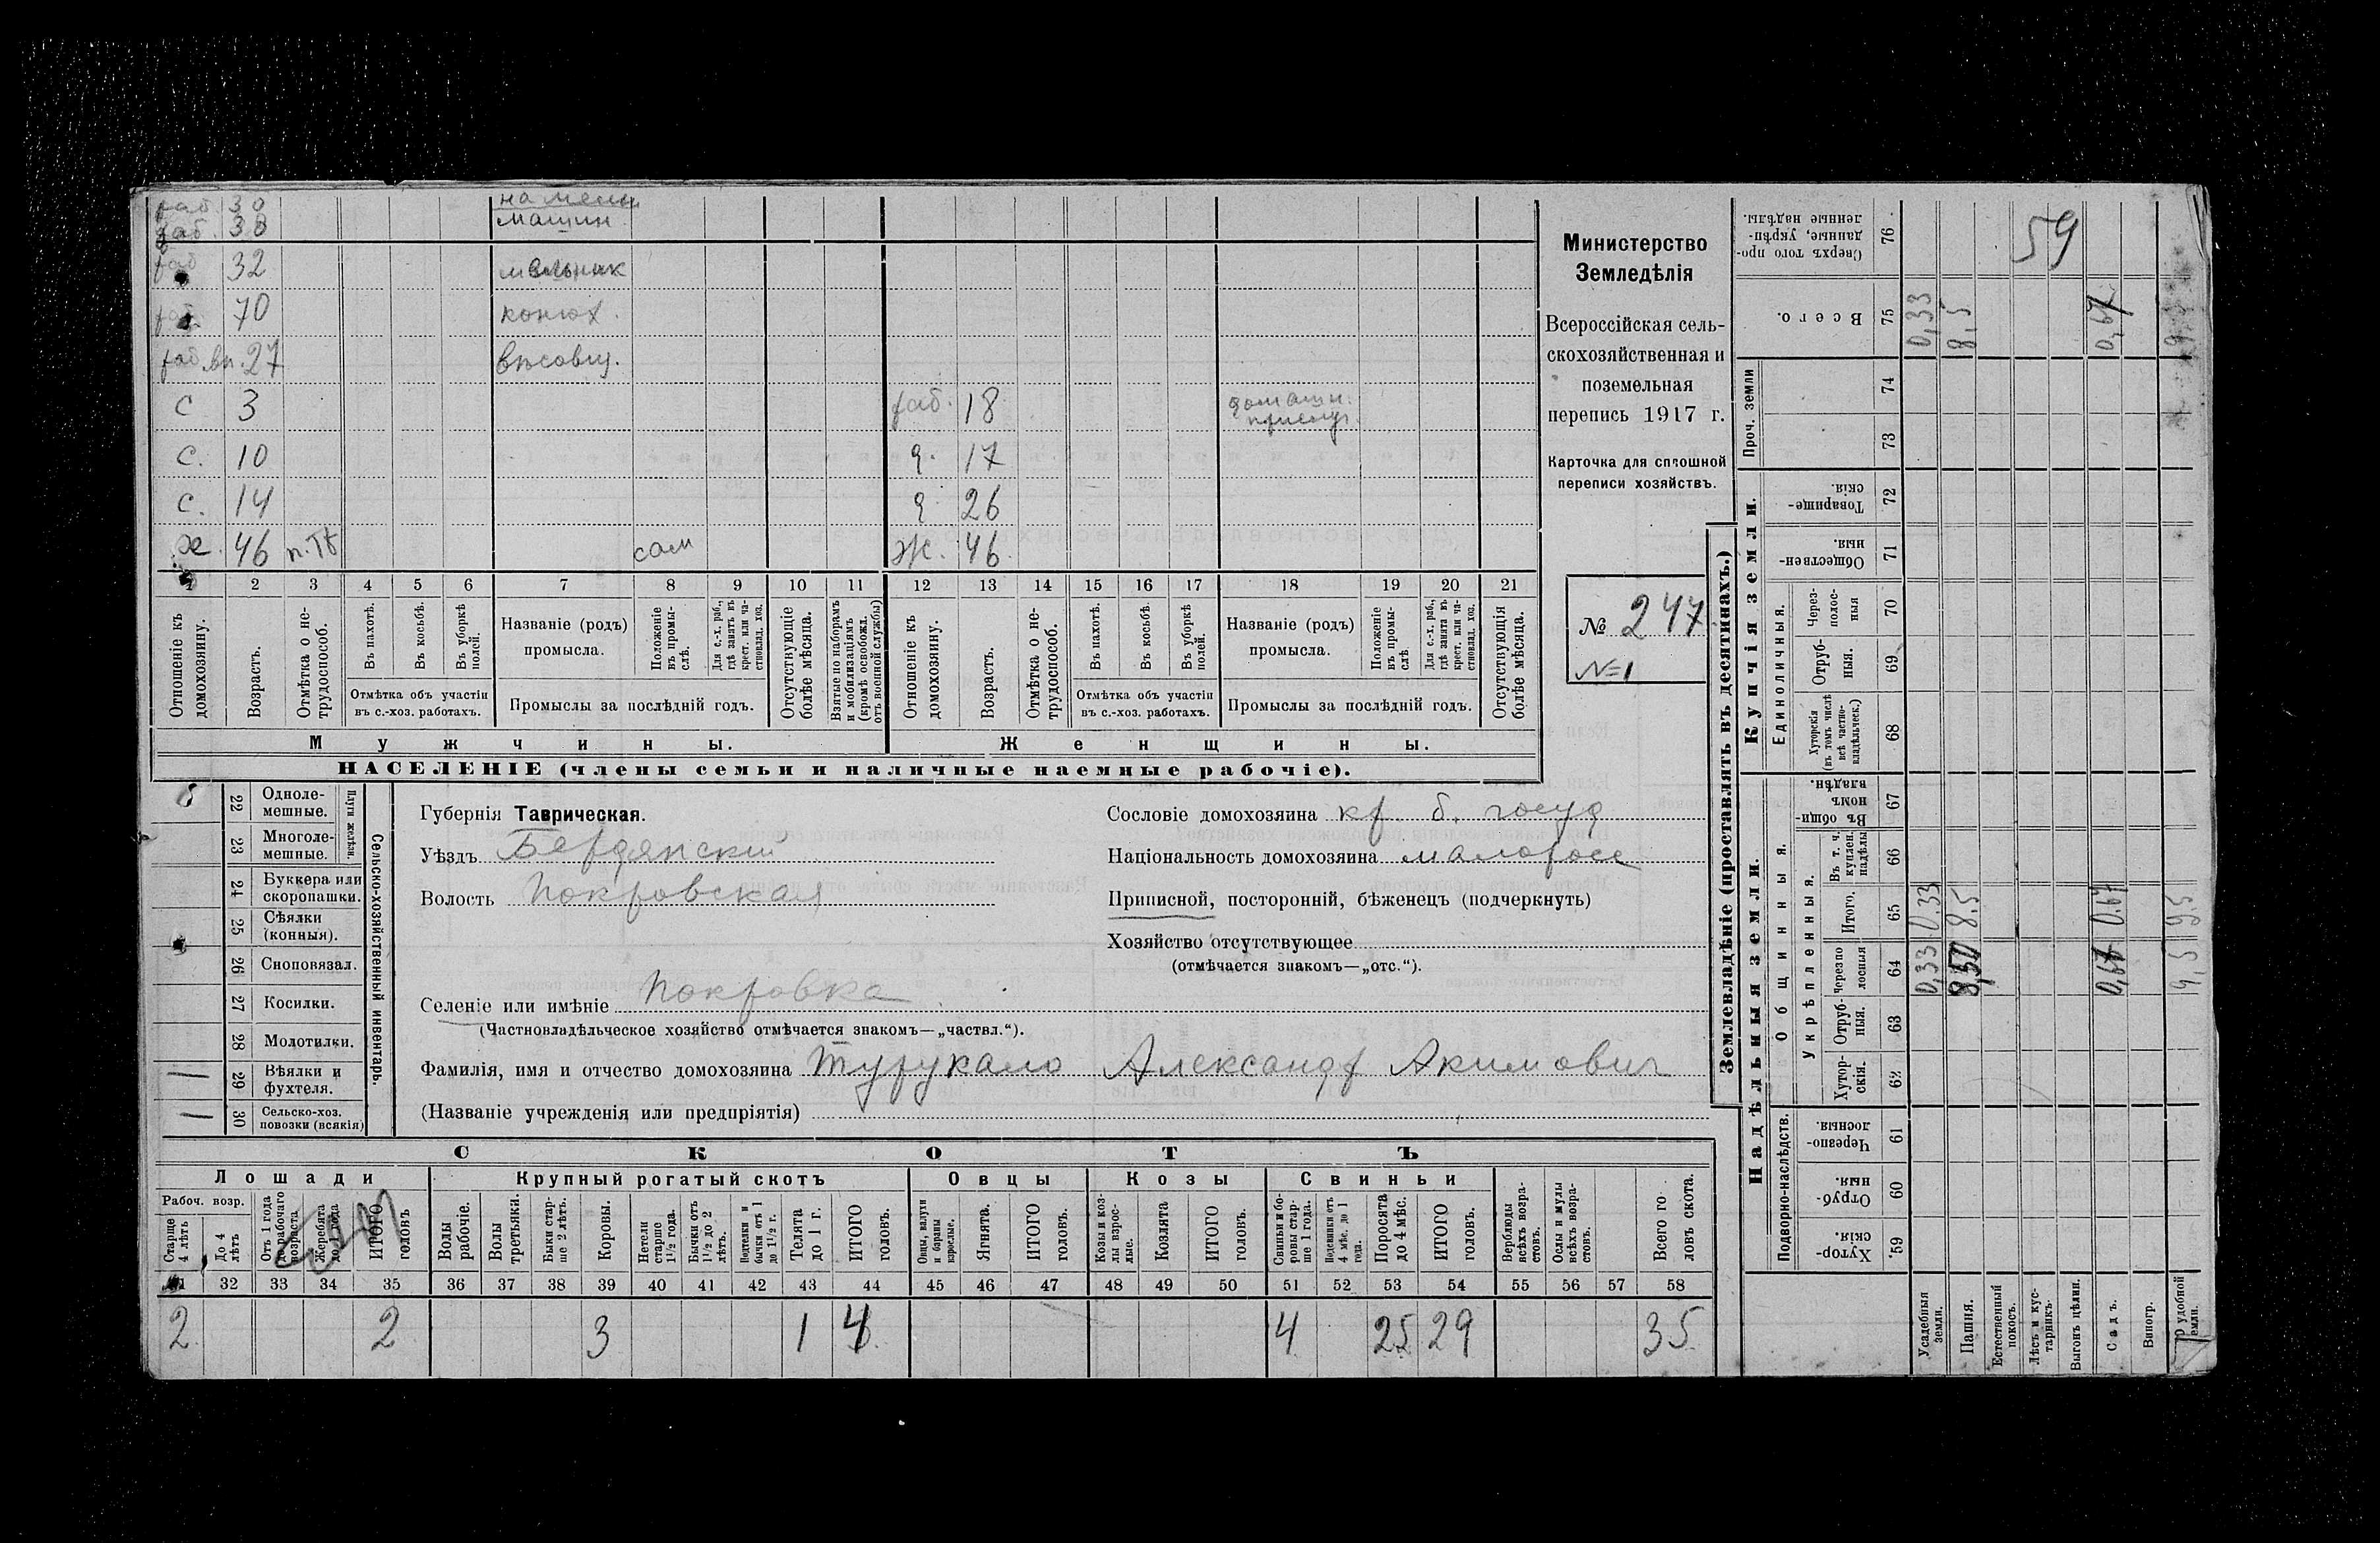 раб. 30 на мельн.
раб. 38 машин.
раб. 32 мельник
раб. 70 конюх.
раб. вп. 27 вѣсовщ.
с 3 раб. 18 домашн. прислуг.
с. 10 д. 17
с. 14 д. 26
х. 46 п. сам Ж. 46
1 2 3 4 5 6 7 8 9 10 11 12 13 14 15 16 17 18 19 20 21
Отношеніе къ домохозяину.
Возрастъ.
Отмѣтка о не-трудоспособ.
Въ пахотѣ.
Въ косьбѣ.
Въ уборкѣ полей.
Отмѣтка объ участіи въ с.-хоз. работахъ.
Названіе (родъ) промысла.
Положеніе въ промы-слѣ.
Для с.-х. раб., гдѣ занятъ въ крест. или ча-стновлад. хоз.
Промыслы за послѣдній годъ.
Отсутствующіе болѣе мѣсяца.
Взятые по наборамъ и мобилизаціямъ (кромѣ освобожд. отъ военной службы)
Отношеніе къ домохозяину.
Возрастъ.
Отмѣтка о не-трудоспособ.
Въ пахотѣ.
Въ косьбѣ.
Въ уборкѣ полей.
Отмѣтка объ участіи въ с.-хоз. работахъ.
Названіе (родъ) промысла.
Положеніе въ промы-слѣ.
Для с.-х. раб., гдѣ занята въ крест. или ча-стновлад. хоз.
Промыслы за послѣдній годъ.
Отсутствующія болѣе мѣсяца.
Мужчины. Женщины.
НАСЕЛЕНІЕ (члены семьи и наличные наемные рабочіе).
Министерство
Земледѣлія
Всероссійская сель-
скохозяйственная и
поземельная
перепись 1917 г.
Карточка для сплошной
переписи хозяйствъ.
№ 247
№ 1
22 Одноле-мешные.
23 Многоле-мешные.
Плуги желѣзн.
24 Буккера или скоропашки.
25 Сѣялки (конныя).
26 Сноповязал.
27 Косилки.
28 Молотилки.
29 Вѣялки и фухтеля.
30 Сельско-хоз. повозки (всякія)
Сельско-хозяйственный инвентарь.
Губернія Таврическая.
Уѣздъ Бердянский
Волость Покровская
Селеніе или имѣніе Покровка
(Частновладѣльческое хозяйство отмѣчается знакомъ—„частвл.“).
Фамилія, имя и отчество домохозяина Турукало Александр Акимович
(Названіе учрежденія или предпріятія)
Сословіе домохозяина кр. б. госуд
Національность домохозяина малоросс
Приписной, посторонній, бѣженецъ (подчеркнуть)
Хозяйство отсутствующее
(отмѣчается знакомъ—„отс.“).
СКОТЪ
Лошади Крупный рогатый скотъ Овцы Козы Свиньи
Рабоч. возр.
Старше 4 лѣтъ
До 4 лѣтъ
Отъ 1 года до рабочаго возраста
Жеребята до 1 года
ИТОГО головъ
Волы рабочіе.
Волы третьяки.
Быки стар-ше 2 лѣтъ.
Коровы.
Нетели старше 1½ года.
Бычки отъ 1½ до 2 лѣтъ.
Подтелки и бычки отъ 1 до 1½ г.
Телята до 1 г.
ИТОГО головъ.
Овцы, валухи и бараны взрослые.
Ягнята.
ИТОГО головъ.
Козы и коз-лы взрос-лые.
Козлята
ИТОГО головъ.
Свиньи и бо-ровы стар-ше 1 года.
Подсвинки отъ 4 мѣс. до 1 года.
Поросята до 4 мѣс.
ИТОГО головъ.
Верблюды всѣхъ возра-стовъ.
Ослы и мулы всѣхъ возра-стовъ.
Всего го ловъ скота.
31 32 33 34 35 36 37 38 39 40 41 42 43 44 45 46 47 48 49 50 51 52 53 54 55 56 57 58
2 2 3 1 4 4 25 29 35
Землевладѣніе (проставлять въ десятинахъ.)
Надѣльныя земли. Купчія земли.
Подворно-наслѣдств.
Хутор-скія. 59.
Отруб-ныя. 60
Черезпо-лосныя. 61
Общинныя.
Укрѣпленныя.
Хутор-скія. 62
Отруб-ныя. 63
Черезпо лосныя 64
Итого. 65
Въ т. ч. куплен. надѣлы 66
Въ общи-номъ владѣн. 67
Единоличныя.
Хуторскія (въ томъ числѣ всѣ частно-владѣльческ.) 68
Отруб-ныя. 69
Через-полос-ныя 70
Обществен-ныя. 71
Товарище-скія. 72
Проч. земли
73
74
Всего. 75
Сверхъ того про-данные, укрѣп-ленные надѣлы. 76
Усадебныя земли. 0,33 0,33 0,33
Пашня. 8,50 8,5 8,5
Естественный покосъ.
Лѣсъ и кус-тарникъ.
Выгонъ цѣлин.
Садъ. 0,67 0,67 0,67
Виногр.
удобной земли. 9,5 9,5 9,5
59